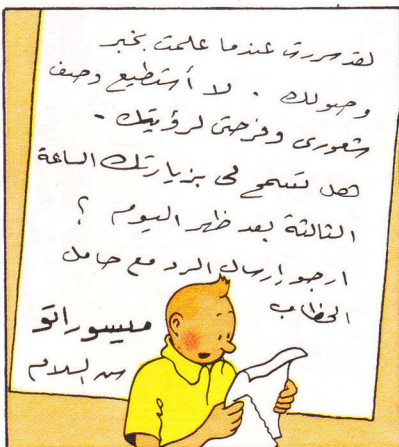 لقد سررت عندما علمت بخبر
وصولك . لا أستطيع وصف
شعورى وفرحتى لرؤيتك -
هل تسمح لى بزيارتك الساعة
الثالثة بعد ظهر اليوم ؟
ارجو إرسال الرد مع حامل
الخطاب
ميسوراتو
من السلام